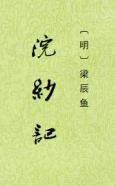 〔明〕梁辰鱼
浣紗記